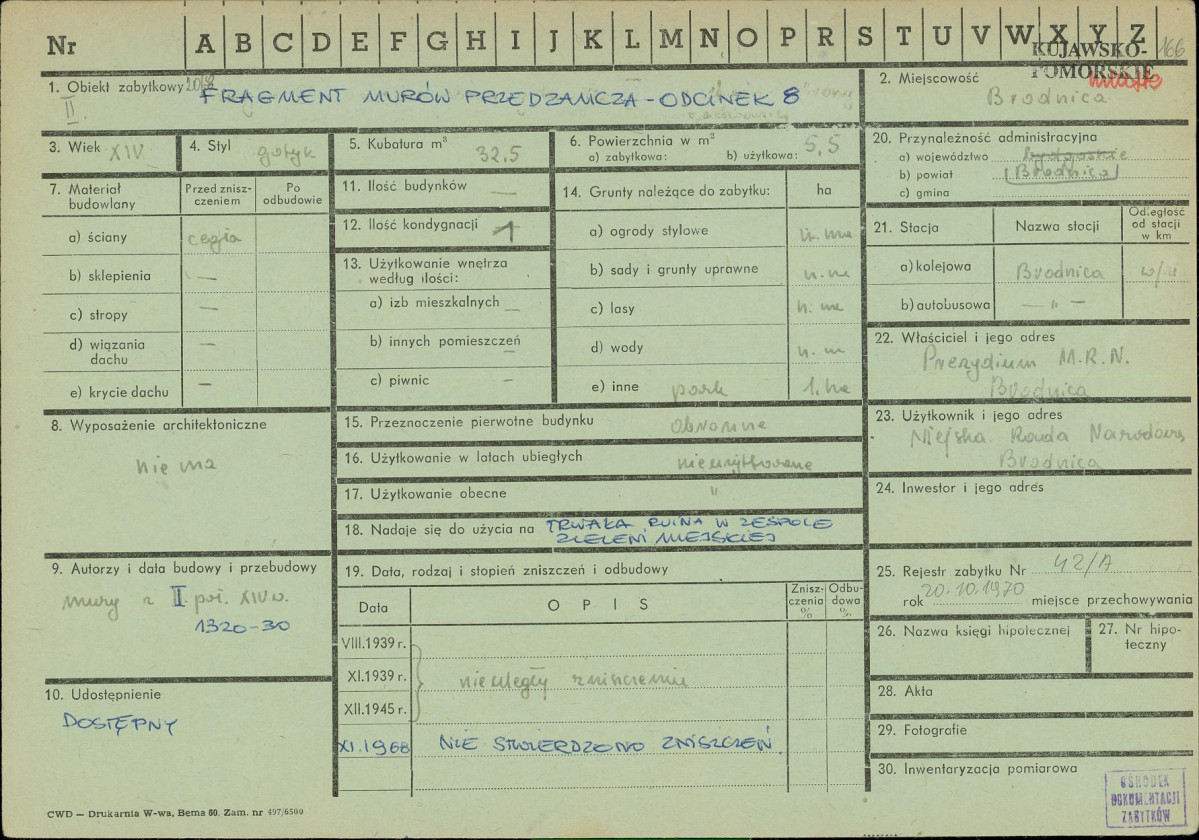 Nr A B C D E F G H I J K L M N O P R S T U V W X Y Z
KUJAWSKO-
POMORSKIE
166
miasto
1. Obiekt zabytkowy
II.
FRAGMENT MURÓW PRZEDZAMCZA - ODCINEK 8
2. Miejscowość
Brodnica
3. Wiek XIV
4. Styl gotyk
5. Kubatura m³ 32,5
6. Powierzchnia w m²
a) zabytkowa: b) użytkowa: 5,5
20. Przynależność administracyjna
a) województwo bydgoskie
b) powiat Brodnica
c) gmina
7. Materiał budowlany
Przed zniszczeniem
Po odbudowie
a) ściany cegła
b) sklepienia —
c) stropy —
d) wiązania dachu —
e) krycie dachu —
11. Ilość budynków —
12. Ilość kondygnacji 1
13. Użytkowanie wnętrza według ilości:
a) izb mieszkalnych —
b) innych pomieszczeń —
c) piwnic —
14. Grunty należące do zabytku: ha
a) ogrody stylowe n. ma
b) sady i grunty uprawne n. ma
c) lasy n. ma
d) wody n. m
e) inne park 1. ha
21. Stacja
Nazwa stacji
Odległość od stacji w km
a) kolejowa Brodnica w/m
b) autobusowa — " —
22. Właściciel i jego adres
Prezydium M.R.N.
Brodnica
23. Użytkownik i jego adres
Miejska Rada Narodowa
Brodnica
24. Inwestor i jego adres
8. Wyposażenie architektoniczne
nie ma
15. Przeznaczenie pierwotne budynku obronne
16. Użytkowanie w latach ubiegłych nieużytkowane
17. Użytkowanie obecne "
18. Nadaje się do użycia na TRWAŁA RUINA W ZESPOLE
ZIELENI MIEJSKIEJ
9. Autorzy i data budowy i przebudowy
mury z II poł. XIV w.
1320-30
10. Udostępnienie
DOSTĘPNY
19. Data, rodzaj i stopień zniszczeń i odbudowy
Data
OPIS
Zniszczenia %
Odbudowa %
VIII.1939 r.
XI.1939 r. nie uległy zniszczeniu
XII.1945 r.
XI.1968 NIE STWIERDZONO ZNISZCZEŃ
25. Rejestr zabytku Nr 42/A
rok 20.10.1970 miejsce przechowywania
26. Nazwa księgi hipotecznej
27. Nr hipoteczny
28. Akta
29. Fotografie
30. Inwentaryzacja pomiarowa
OŚRODEK
DOKUMENTACJI
ZABYTKÓW
CWD — Drukarnia W-wa, Bema 60. Zam. nr 497/6500